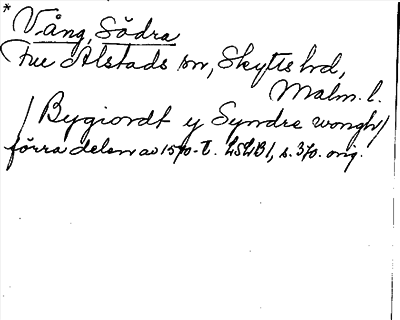 * Vång, Södra
Fru Alstads sn, Skytts hrd,
Malm. l.
/Bygiordt y Syndre wongh/
förra delen av 1570-t. LSLB1, s. 370. orig.